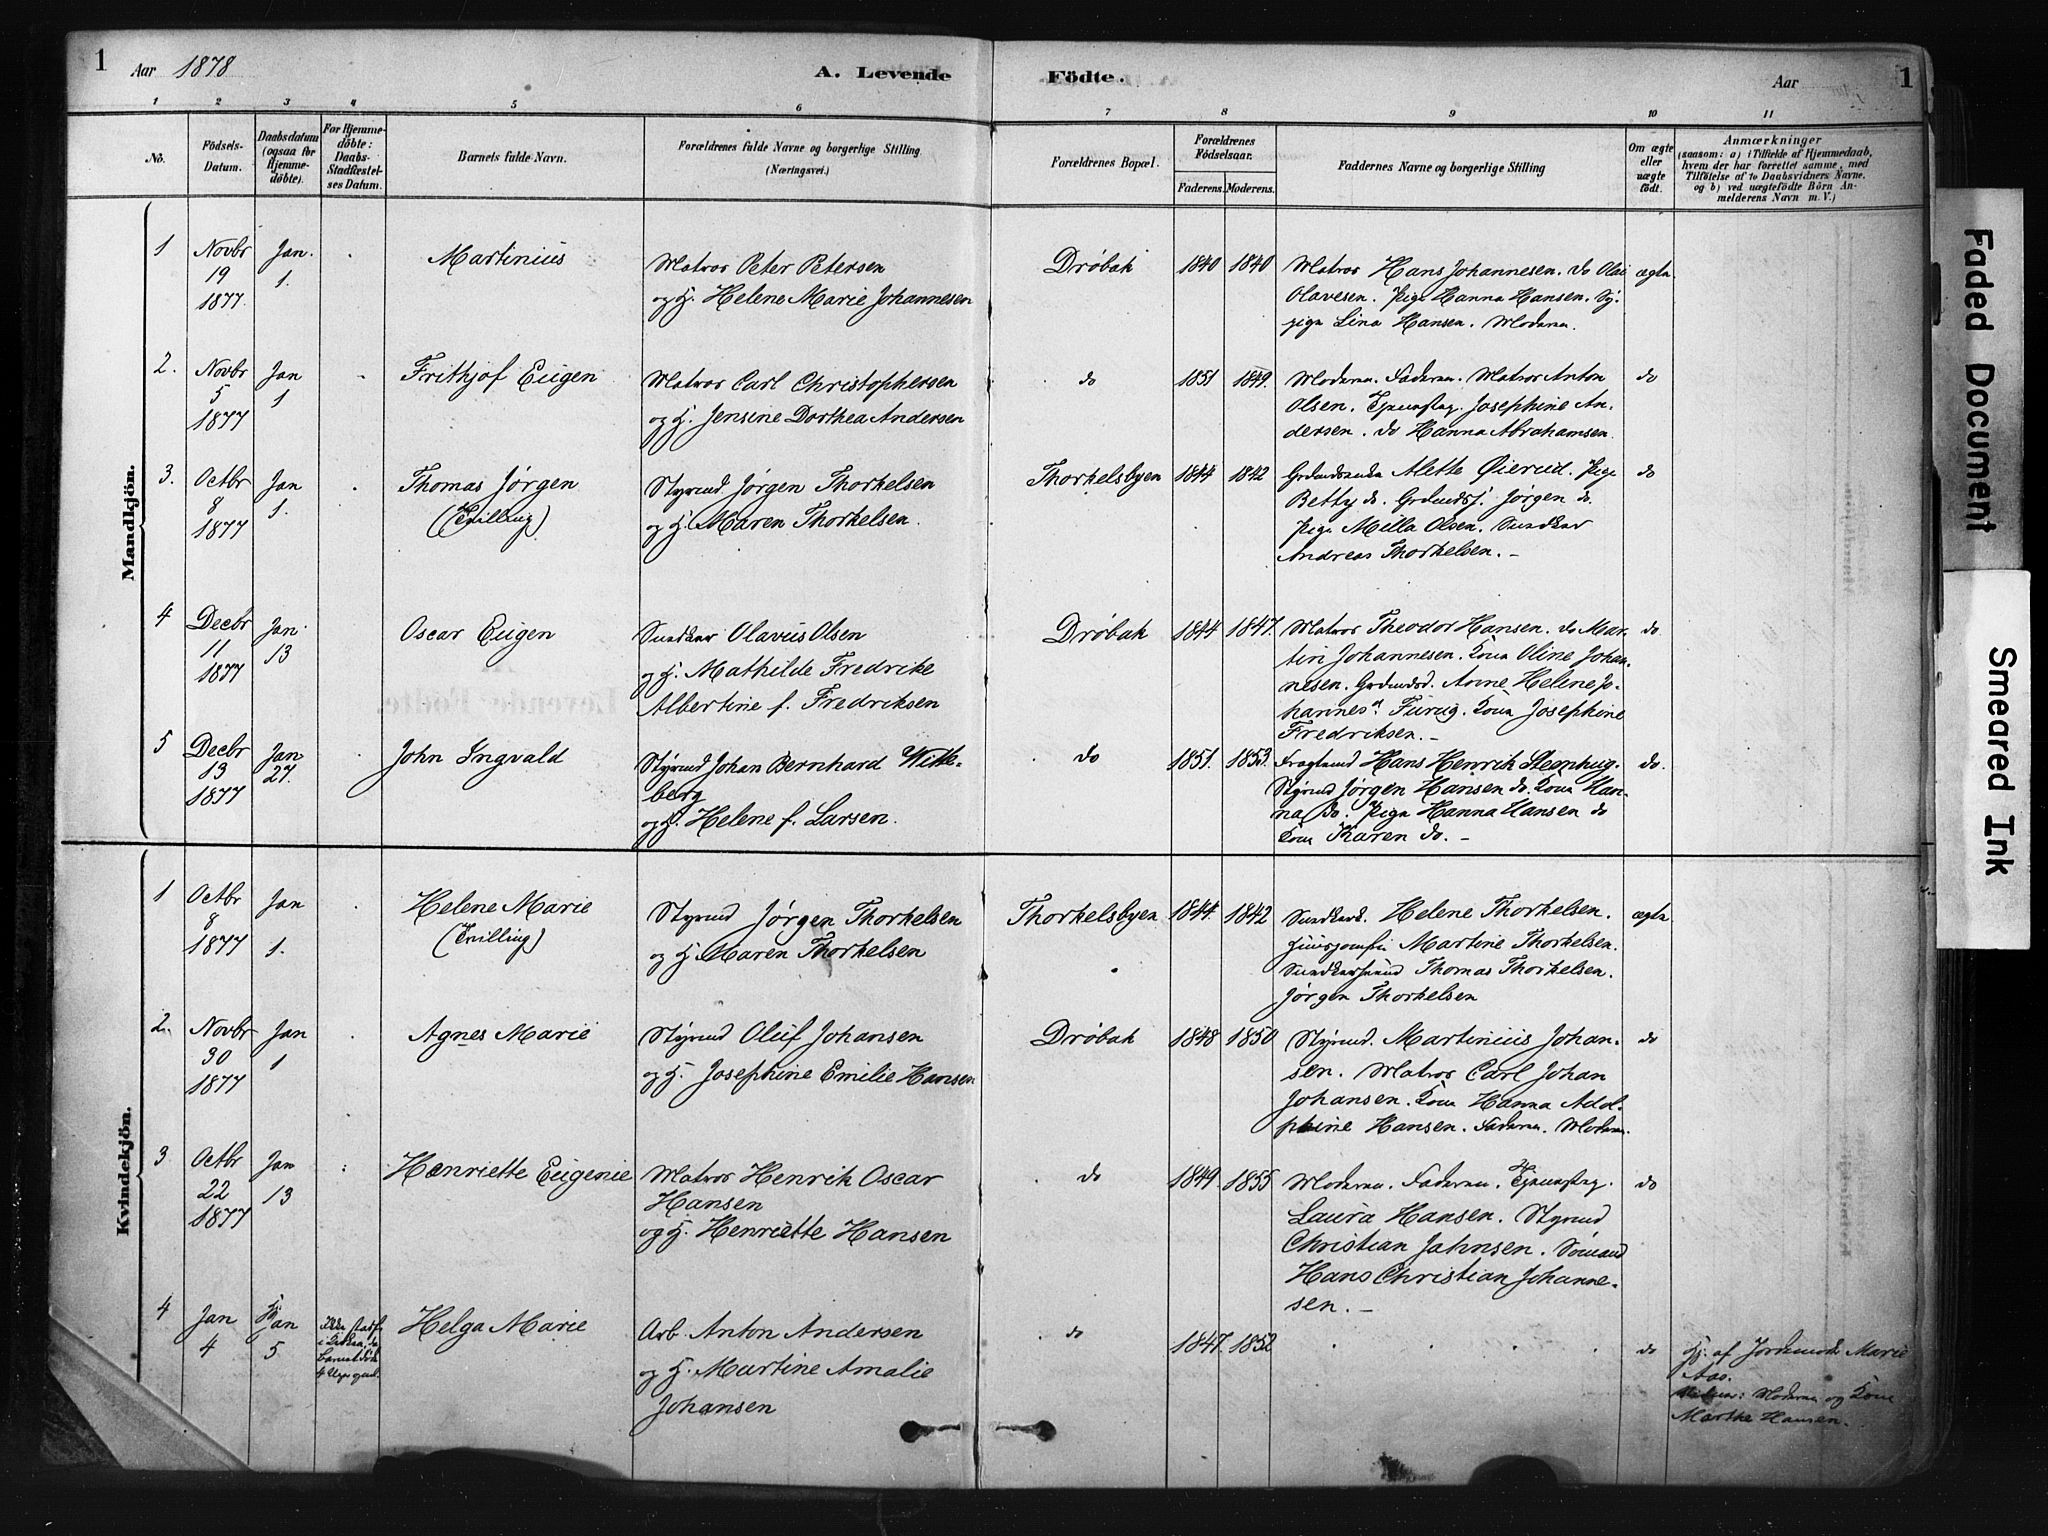 1
Aar 1878
A. Levende
Födte.
Aar
1
1 2 3 4 5 6 7 8 9 10 11
No.
Födsels-
Datum.
Daabsdatum
(ogsaa for
Hjemme-
döbte).
For Hjemme-
döbte:
Daabs-
Stadfæstel-
ses Datum.
Barnets fulde Navn.
Forældrenes fulde Navne og borgerlige Stilling
(Næringsvei.)
Forældrenes Bopæl.
Forældrenes
Födselsaar.
Faderens.
Moderens.
Faddernes Navne og borgerlige Stilling
Om ægte
eller
uægte
födt.
Anmærkninger
(saasom: a) i Tilfælde af Hjemmedaab,
hvem der har forrettet samme, med
Tilföielse af to Daabsvidners Navne.
og b) ved uægtefödte Börn An-
melderens Navn m. V.)
Mandkjön.
1
Novbr
19
1877.
Jan.
1.
Martinius
Matros Peter Petersen
og H. Helene Marie Johannesen
Drøbak
1840
1840
Matros Hans Johannesen. do Olai
Olavesen. Pige Hanna Hansen. Sy-
pige Lina Hansen. Moderen.
ægte
2.
Novbr
5
1877
Jan
1
Frithjof Eugen
Matros Carl Christophersen
og H. Jensine Dorthea Andersen
do
1851
1849.
Moderen. Faderen. Matros Anton
Olsen. Tjenestpg. Josephine An-
dersen. do Hanna Abrahamsen.
do
3.
Octbr
8
1877
Jan
1.
Thomas Jørgen
(Tvilling)
Styrmd Jørgen Thorkelsen
og H. Maren Thorkelsen.
Thorkelsbyen
1844
1842
Alette Øierud. Pige
Betty do. Jørgen do.
Pige Milla Olsen.
Andreas Thorkelsen. -
do
4
Decbr
11
1877
Jan
13
Oscar Eugen
Olavus Olsen
og H. Mathilde Fredrike
Albertine f. Fredriksen
Drøbak
1844
1847.
Matros Theodor Hansen. do Mar-
tin Johannesen. Kone Oline Johan-
nesen. Anne Helene Jo-
hannesn Furug. Kone Josephine
Fredriksen. -
do
5
Decbr
13
1877
Jan
27.
John Ingvald
Styrmd Johan Bernhard Witte-
berg
og H. Helene f. Larsen.
do
1851.
1853.
Hans Henrik Steenhug.
Styrmd Jørgen Hansen do. Kone Han-
na do. Pige Hanna Hansen do
Kone Karen do. -
do.
Kvindekjön.
1
Octbr
8
1877
Jan
1.
Helene Marie
(Tvilling)
Styrmd Jørgen Thorkelsen
og H. Maren Thorkelsen
Thorkelsbyen
1844.
1842
Helene Thorkelsen.
Martine Thorkelsen.
Thomas Thorkelsen.
Jørgen Thorkelsen
ægte
2.
Novbr
30
1877
Jan
1
Agnes Marie
Styrmd Oluf Johansen
og H. Josephine Emilie Hansen
Drøbak
1848
1850
Styrmd. Martinius Johan-
sen. Matros Carl Johan
Johansen. Kone Hanna Adol-
phine Hansen. Faderen. Moderen.
do
3
Octbr
22
1877
Jan
13
Henriette Eugenie
Matros Henrik Oscar
Hansen
og H. Henriette Hansen
do
1849.
1855
Moderen. Faderen. Tjenestpg.
Laura Hansen. Styrmd
Christian Jahnsen. Sömand
Hans Christian Johanne-
sen. -
do
4
Jan
4
Hj
Jan
5
Helga Marie
Arb. Anton Andersen
og H. Martine Amalie
Johansen
do
1847.
1852
do
Hj. af Jordemoder Marie
Aas.
Vidner: Moderen og Kone
Marthe Hansen.
Faded Document
Smeared Ink